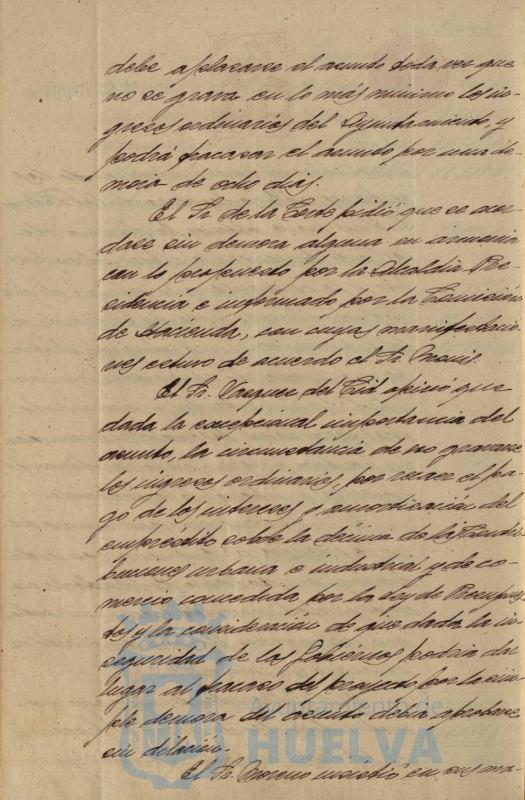 debe aplazarse el asunto toda vez que
no se grava en lo más minimo los in-
gresos ordinarios del Ayuntamiento, y
podrá fracasar el asunto por una de-
mora de ocho dias.
El Sr. de la Corte pidió que se acor-
dase sin demora alguna en armonia
con lo propuesto por la Alcaldia Pre-
sidencia e informado por la Comisión
de Hacienda, con cuyas manifestacio-
nes estuvo de acuerdo el Sr.
El Sr. Vazquez del Cid opinó que
dada la excepcional importancia del
asunto, la circunstancia de no gravarse
los ingresos ordinarios, por recaer el pa-
go de los intereses y amortización del
empréstito sobre la décima de la Contri-
buciones urbana e industrial y de co-
mercio, concedida por la Ley de Presupues
tos y la consideración de que dada la in-
seguridad de los Gobiernos podria dar
lugar al fracaso del proyecto por la sim-
ple demora del asunto debia aprobarse
sin dilación.
El Sr. Moreno insistió en sus ma-
Ayuntamiento de
HUELVA